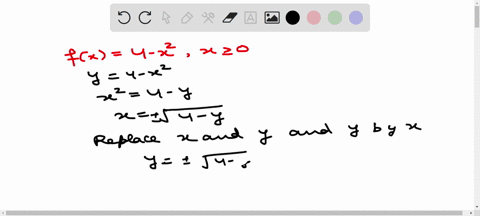 f(x) = 4-x², x ≥ 0
y = 4-x²
x² = 4-y
x = ±√4-y
Replace x and y and y by x
y = ± √4-